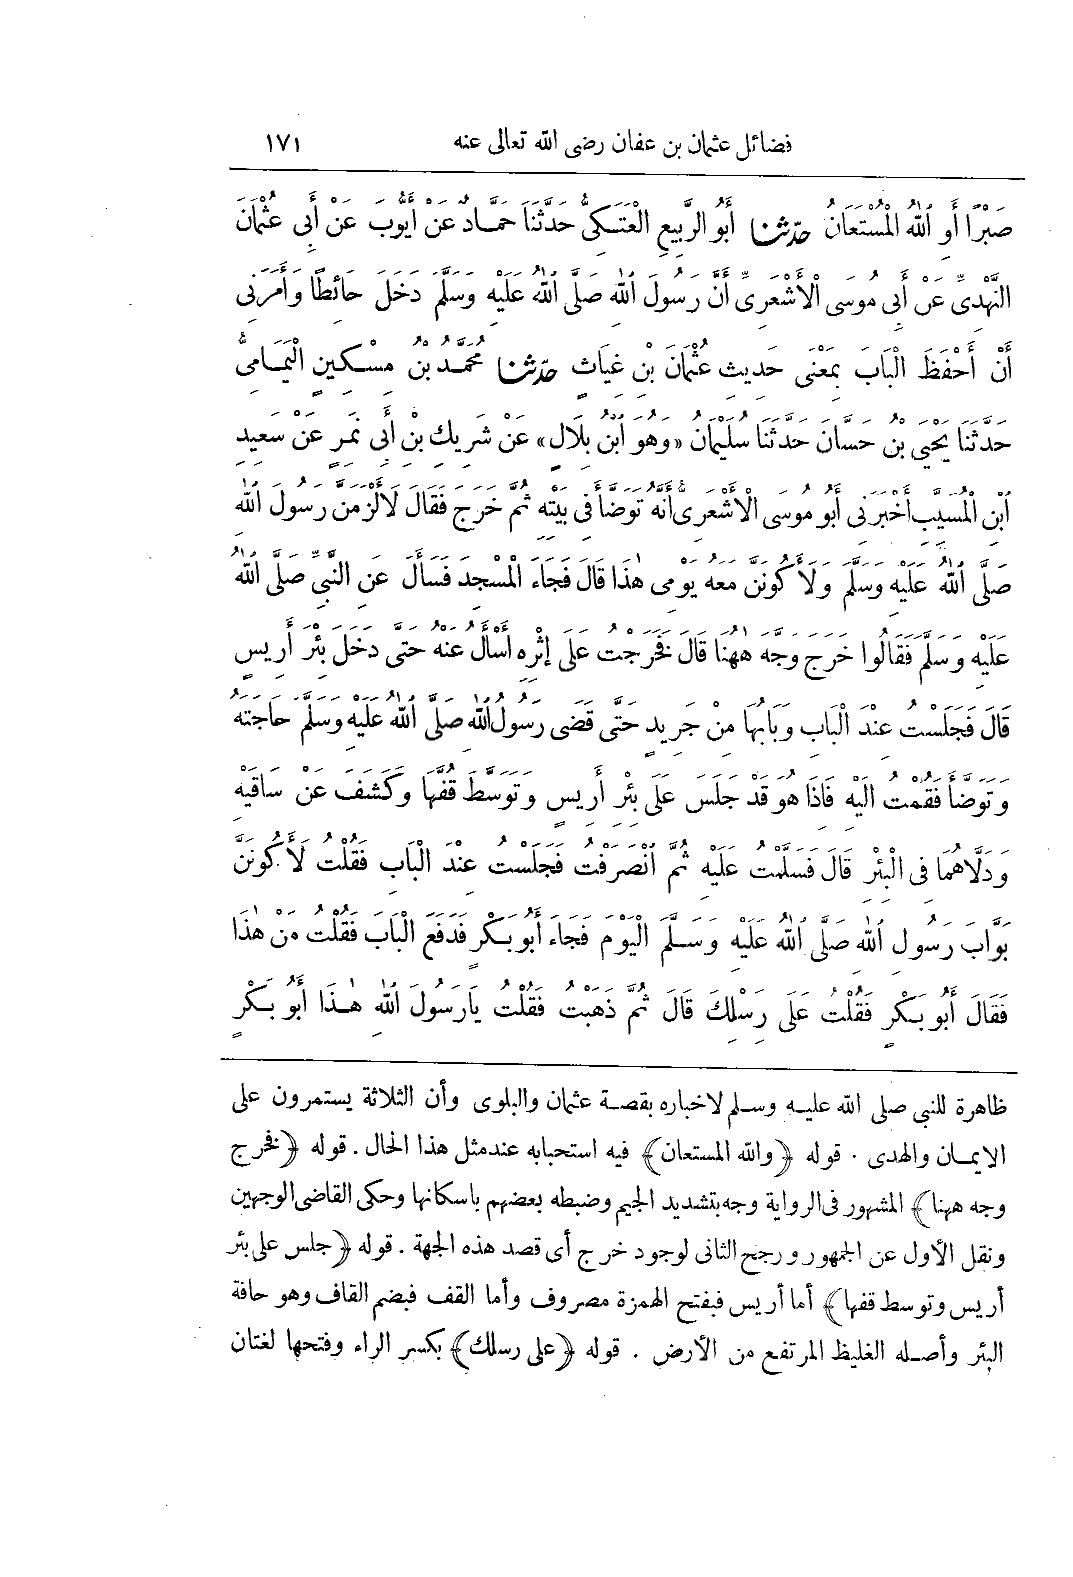 فضائل عثمان بن عفان رضى الله تعالى عنه ١٧١
صَبْرًا أَوِ اللهُ الْمُسْتَعَانُ حَدَّثَنَا أَبُو الرَّبِيعِ الْعَتَكِيُّ حَدَّثَنَا حَمَّادٌ عَنْ أَيُّوبَ عَنْ أَبِى عُثْمَانَ
النَّهْدِىِّ عَنْ أَبِى مُوسَى الْأَشْعَرِىِّ أَنَّ رَسُولَ اللهِ صَلَّى اللهُ عَلَيْهِ وَسَلَّمَ دَخَلَ حَائِطًا وَأَمَرَنِى
أَنْ أَحْفَظَ الْبَابَ بِمَعْنَى حَدِيثِ عُثْمَانَ بْنِ غِيَاثٍ حَدَّثَنَا مُحَمَّدُ بْنُ مِسْكِينٍ الْيَمَامِىُّ
حَدَّثَنَا يَحْيَى بْنُ حَسَّانَ حَدَّثَنَا سُلَيْمَانُ «وَهُوَ ابْنُ بِلَالٍ» عَنْ شَرِيكِ بْنِ أَبِى نَمِرٍ عَنْ سَعِيدِ
ابْنِ الْمُسَيِّبِ أَخْبَرَنِى أَبُو مُوسَى الْأَشْعَرِىُّ أَنَّهُ تَوَضَّأَ فِى بَيْتِهِ ثُمَّ خَرَجَ فَقَالَ لَأَلْزَمَنَّ رَسُولَ اللهِ
صَلَّى اللهُ عَلَيْهِ وَسَلَّمَ وَلَأَكُونَنَّ مَعَهُ يَوْمِى هٰذَا قَالَ فَجَاءَ الْمَسْجِدَ فَسَأَلَ عَنِ النَّبِىِّ صَلَّى اللهُ
عَلَيْهِ وَسَلَّمَ فَقَالُوا خَرَجَ وَجَّهَ هٰهُنَا قَالَ فَخَرَجْتُ عَلَى إِثْرِهِ أَسْأَلُ عَنْهُ حَتَّى دَخَلَ بِئْرَ أَرِيسٍ
قَالَ فَجَلَسْتُ عِنْدَ الْبَابِ وَبَابُهَا مِنْ جَرِيدٍ حَتَّى قَضَى رَسُولُ اللهِ صَلَّى اللهُ عَلَيْهِ وَسَلَّمَ حَاجَتَهُ
وَتَوَضَّأَ فَقُمْتُ إِلَيْهِ فَإِذَا هُوَ قَدْ جَلَسَ عَلَى بِئْرِ أَرِيسٍ وَتَوَسَّطَ قُفَّهَا وَكَشَفَ عَنْ سَاقَيْهِ
وَدَلَّاهُمَا فِى الْبِئْرِ قَالَ فَسَلَّمْتُ عَلَيْهِ ثُمَّ انْصَرَفْتُ فَجَلَسْتُ عِنْدَ الْبَابِ فَقُلْتُ لَأَكُونَنَّ
بَوَّابَ رَسُولِ اللهِ صَلَّى اللهُ عَلَيْهِ وَسَلَّمَ الْيَوْمَ فَجَاءَ أَبُو بَكْرٍ فَدَفَعَ الْبَابَ فَقُلْتُ مَنْ هٰذَا
فَقَالَ أَبُو بَكْرٍ فَقُلْتُ عَلَى رِسْلِكَ قَالَ ثُمَّ ذَهَبْتُ فَقُلْتُ يَا رَسُولَ اللهِ هٰذَا أَبُو بَكْرٍ
ظاهرة للنبى صلى الله عليه وسلم لاخباره بقصة عثمان والبلوى وأن الثلاثة يستمرون على
الايمان والهدى . قوله ﴿والله المستعان﴾ فيه استحبابه عند مثل هذا الحال . قوله ﴿فخرج
وجه ههنا﴾ المشهور فى الرواية وجه بتشديد الجيم وضبطه بعضهم باسكانها وحكى القاضى الوجهين
ونقل الأول عن الجمهور ورجح الثانى لوجود خرج أى قصد هذه الجهة . قوله ﴿جلس على بئر
أريس وتوسط قفها﴾ أما أريس فبفتح الهمزة مصروف وأما القف فبضم القاف وهو حافة
البئر وأصله الغليظ المرتفع من الأرض . قوله ﴿على رسلك﴾ بكسر الراء وفتحها لغتان